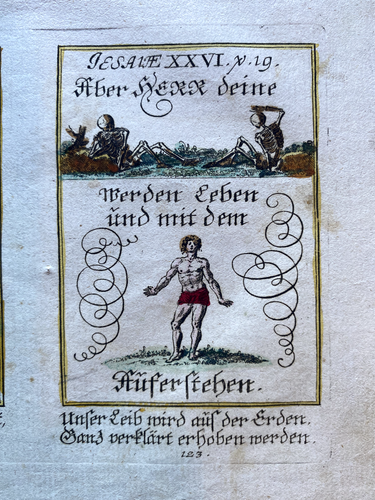 JESAIÆ XXVI. ỹ. 19.
Aber HERR deine
werden Leben
und mit dem
Aŭferstehen.
Unser Leib wird aŭs der Erden.
Gantz verklärt erhoben werden.
123.